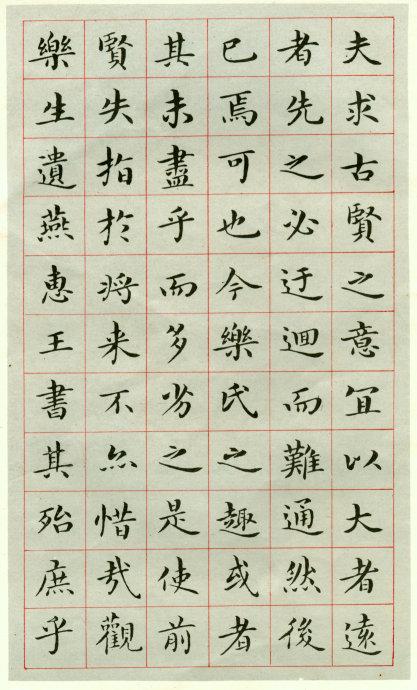 夫求古賢之意宜以大者遠
者先之必迂迴而難通然後
已焉可也今樂氏之趣或者
其未盡乎而多劣之是使前
賢失指於将来不亦惜哉觀
樂生遺燕惠王書其殆庶乎